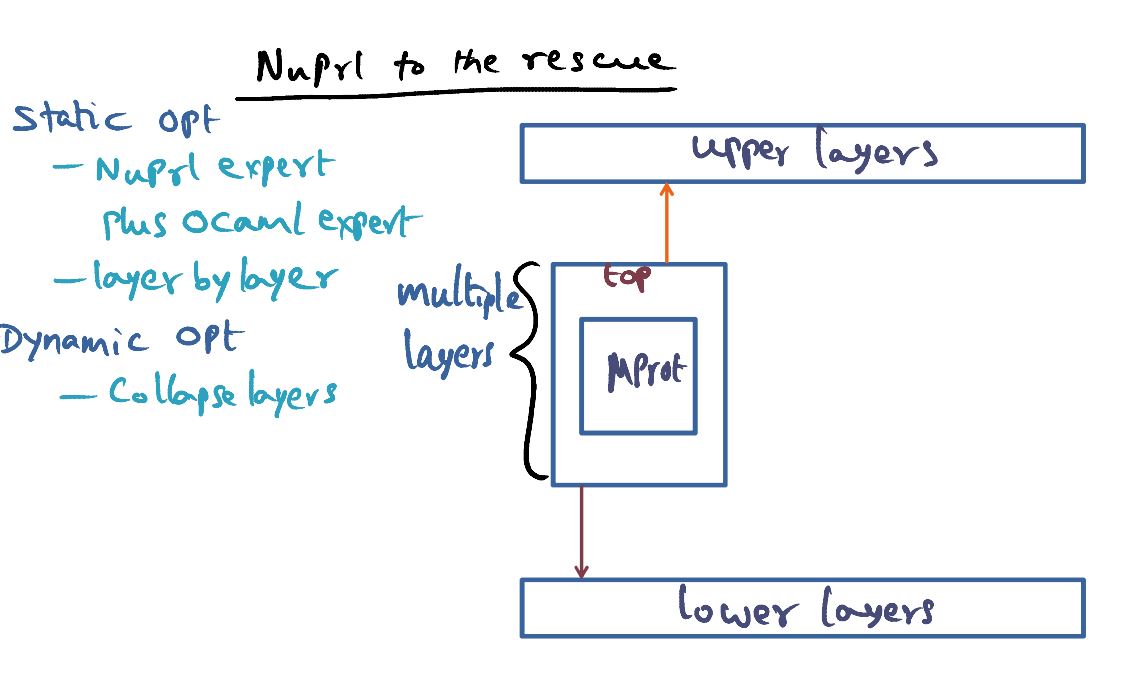 NuPrl to the rescue
Static opt
– NuPrl expert
plus OCaml expert
– layer by layer
Dynamic opt
– Collapse layers
upper layers
multiple
layers
top
MProt
lower layers